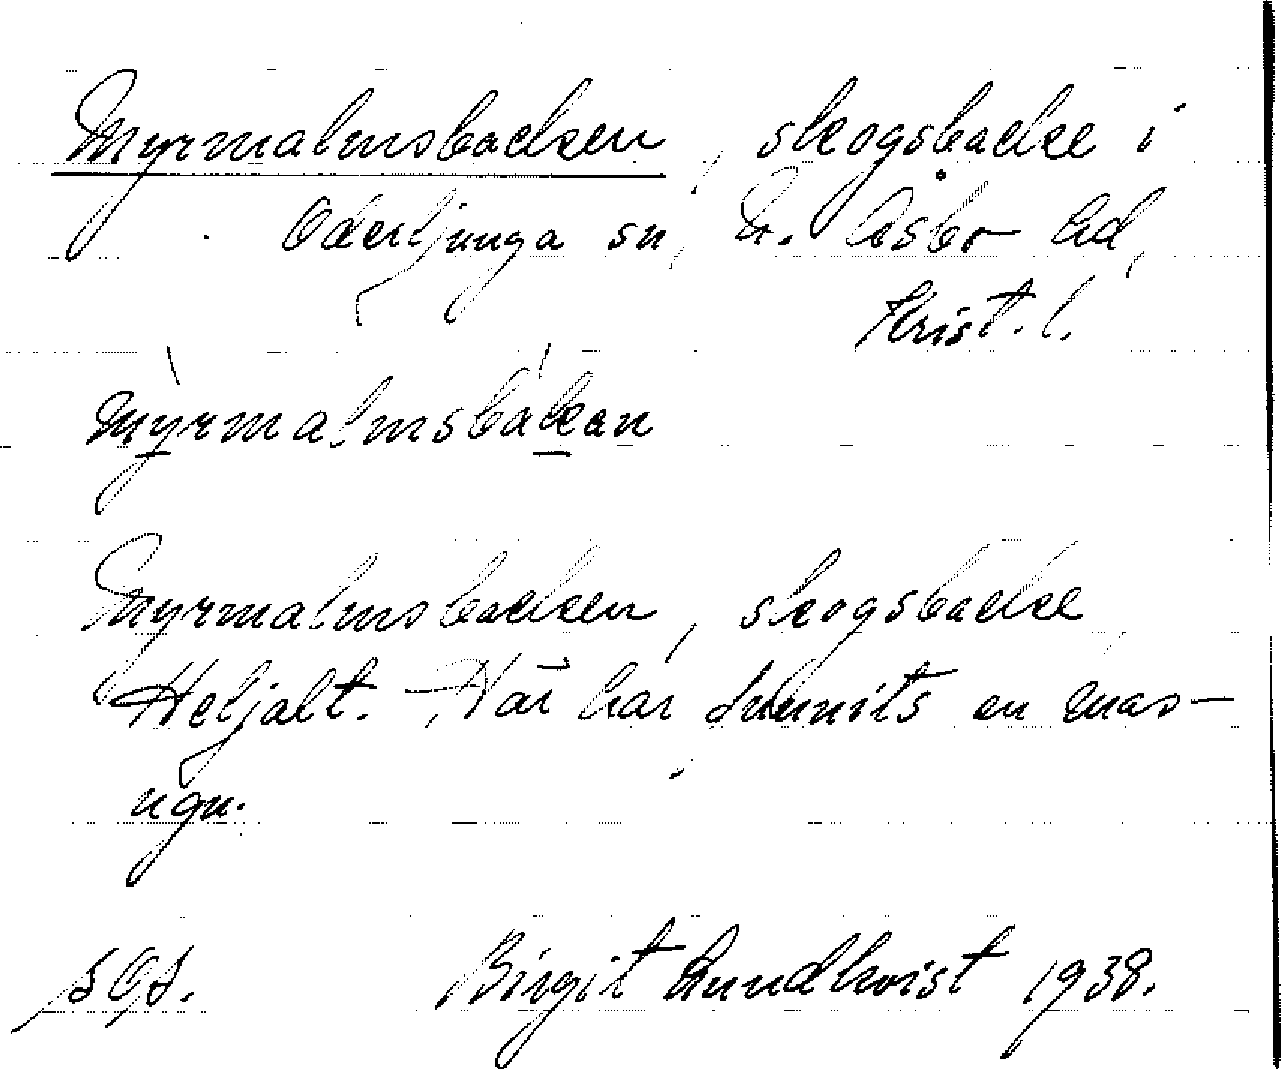 Myrmalmsbacken, skogsbacke i
Oderljunga sn, N. Åsbo hd,
Krist. l.
myrmalmsbakan
Myrmalmsbacken, skogsbacke,
Heljalt. Här har funnits en mas-
ugn.
sgs. Birgit Lundkvist 1938.